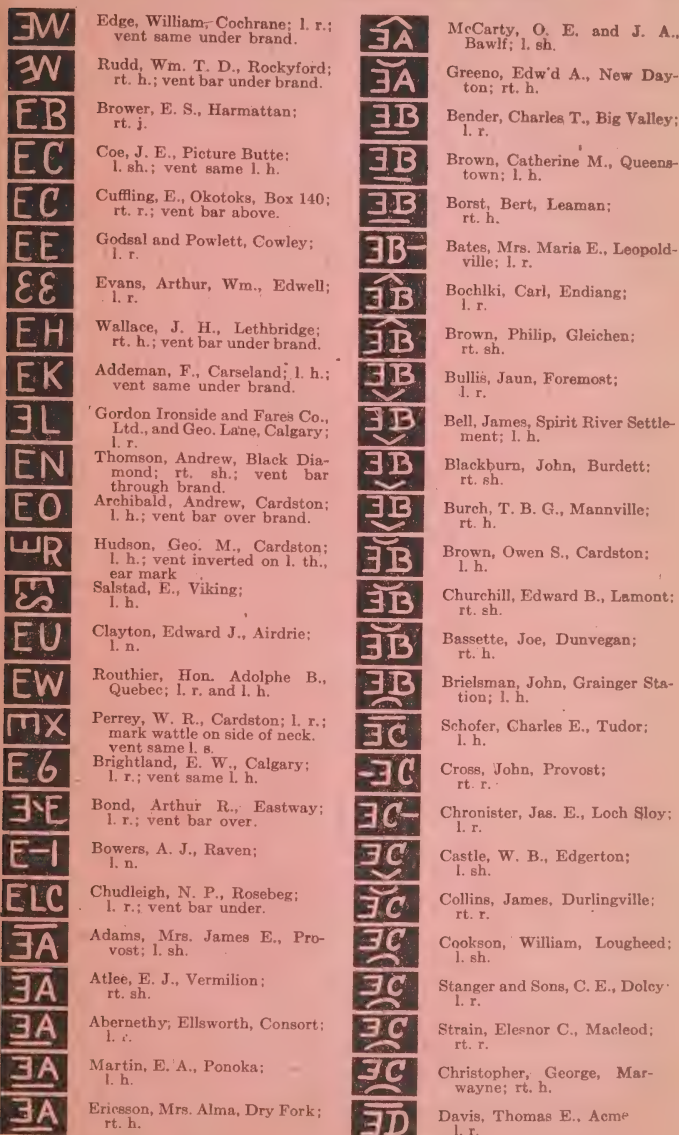 Edge, William, Cochrane; l. r.;
vent same under brand.
Rudd, Wm. T. D., Rockyford;
rt. h.; vent bar under brand.
EB
Brower, E. S., Harmattan;
rt. j.
EC
Coe, J. E., Picture Butte;
l. sh.; vent same l. h.
EC
Cuffling, E., Okotoks, Box 140;
rt. r.; vent bar above.
EE
Godsal and Powlett, Cowley;
l. r.
Evans, Arthur, Wm., Edwell;
l. r.
EH
Wallace, J. H., Lethbridge;
rt. h.; vent bar under brand.
EK
Addeman, F., Carseland; l. h.;
vent same under brand.
Gordon Ironside and Fares Co.,
Ltd., and Geo. Lane, Calgary;
l. r.
EN
Thomson, Andrew, Black Dia-
mond; rt. sh.; vent bar
through brand.
EO
Archibald, Andrew, Cardston;
l. h.; vent bar over brand.
Hudson, Geo. M., Cardston;
l. h.; vent inverted on l. th.,
ear mark
Salstad, E., Viking;
l. h.
EU
Clayton, Edward J., Airdrie;
l. n.
EW
Routhier, Hon. Adolphe B.,
Quebec; l. r. and l. h.
Perrey, W. R., Cardston; l. r.;
mark wattle on side of neck.
vent same l. s.
E6
Brightland, E. W., Calgary;
l. r.; vent same l. h.
Bond, Arthur R., Eastway;
l. r.; vent bar over.
E-I
Bowers, A. J., Raven;
l. n.
ELC
Chudleigh, N. P., Rosebeg;
l. r.; vent bar under.
Adams, Mrs. James E., Pro-
vost; l. sh.
Atlee, E. J., Vermilion;
rt. sh.
Abernethy, Ellsworth, Consort;
l.
Martin, E. A., Ponoka;
l. h.
Ericsson, Mrs. Alma, Dry Fork;
rt. h.
McCarty, O. E. and J. A.,
Bawlf; l. sh.
Greeno, Edw'd A., New Day-
ton; rt. h.
Bender, Charles T., Big Valley;
l. r.
Brown, Catherine M., Queens-
town; l. h.
Borst, Bert, Leaman;
rt. h.
Bates, Mrs. Maria E., Leopold-
ville; l. r.
Bochlki, Carl, Endiang;
l. r.
Brown, Philip, Gleichen;
rt. sh.
Bullis, Jaun, Foremost;
l. r.
Bell, James, Spirit River Settle-
ment; l. h.
Blackburn, John, Burdett;
rt. sh.
Burch, T. B. G., Mannville;
rt. h.
Brown, Owen S., Cardston;
l. h.
Churchill, Edward B., Lamont;
rt. sh.
Bassette, Joe, Dunvegan;
rt. h.
Brielsman, John, Grainger Sta-
tion; l. h.
Schofer, Charles E., Tudor;
l. h.
Cross, John, Provost;
rt. r.
Chronister, Jas. E., Loch Sloy;
l. r.
Castle, W. B., Edgerton;
l. sh.
Collins, James, Durlingville;
rt. r.
Cookson, William, Lougheed;
l. sh.
Stanger and Sons, C. E., Dolcy
l. r.
Strain, Elesnor C., Macleod;
rt. r.
Christopher, George, Mar-
wayne; rt. h.
Davis, Thomas E., Acme
l. r.